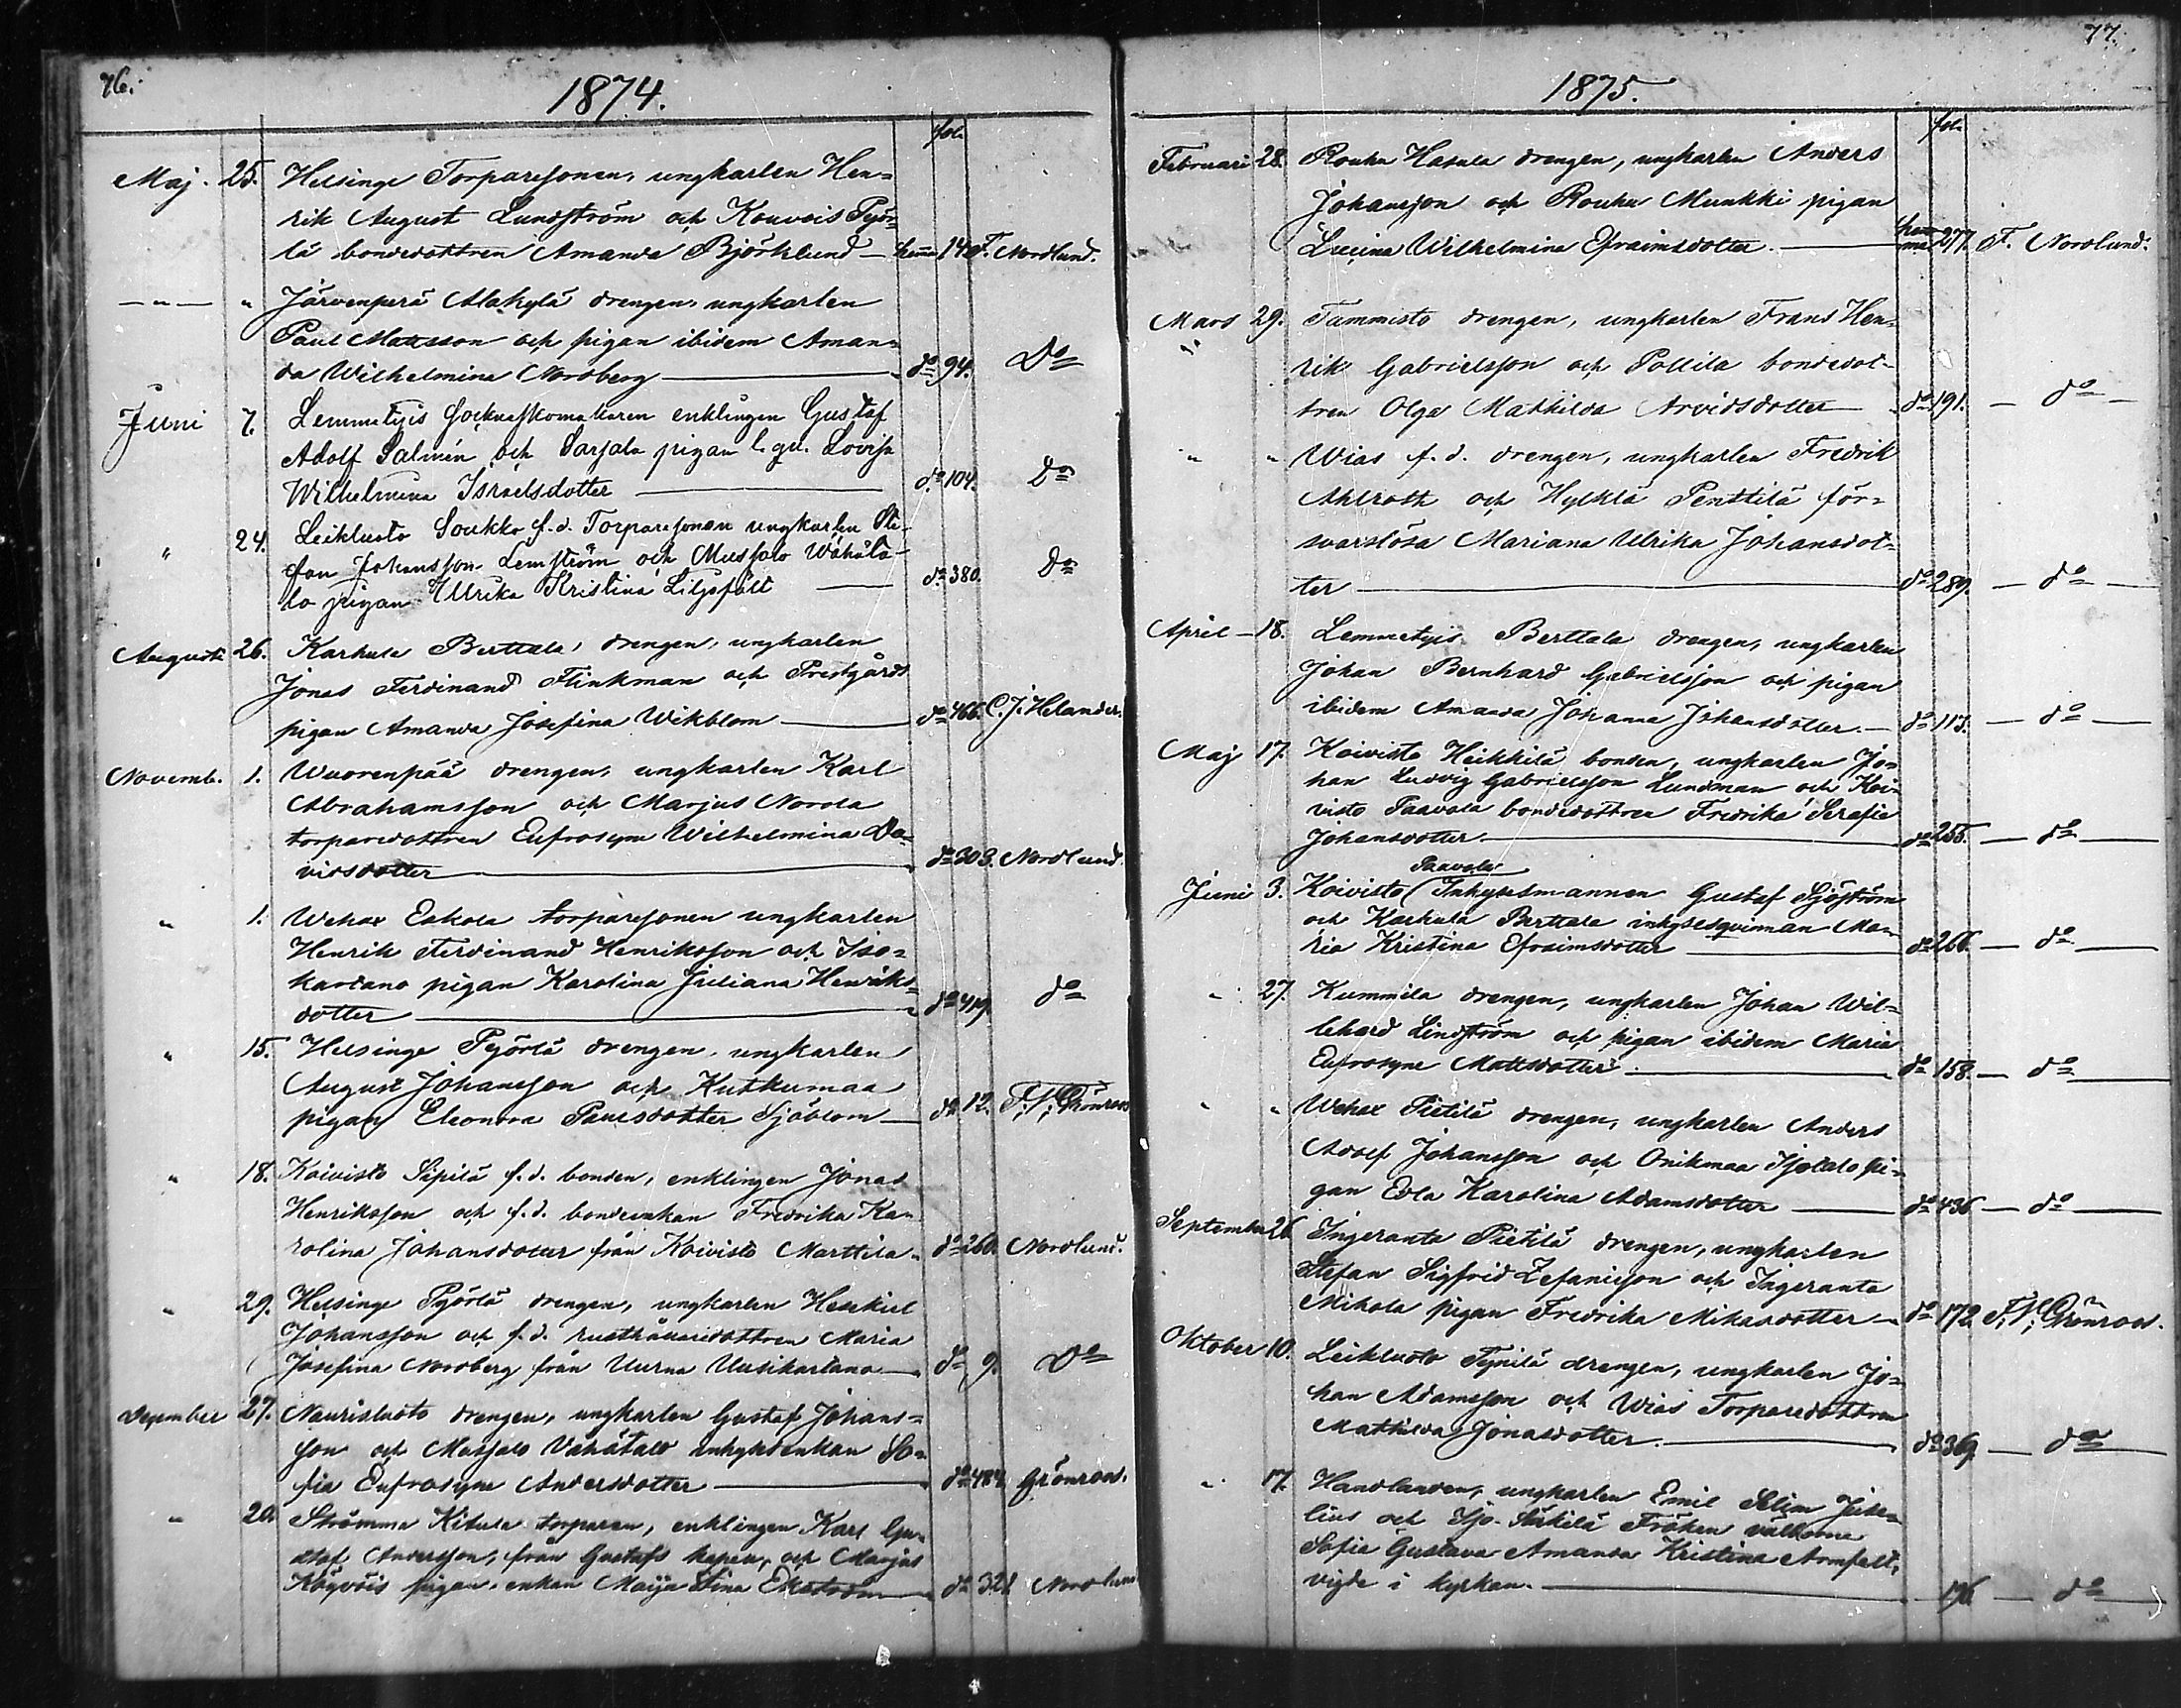 76.
1874.
fol.
Maj. 25. Helsinge Torparesonen, ungkarlen Hen=
rik August Lundström och Kouvois Pyör=
lä bondedottren Amanda Björklund — hemma 140 F. Nordlund.
— „ — „ Järvenperä Alakylä drengen, ungkarlen
Paul Matsson och pigan ibidem Aman=
da Wilhelmina Nordberg — do 94. Do
Juni 7. Lemmetyis Sockneskomakaren enklingen Gustaf
Adolf Salmén och Sarsala pigan Lovisa
Wilhelmina Israelsdotter — do 104. Do
" 24. Leikluoto Soukko f.d. Torparesonen ungkarlen Ste-
fan Johansson Lemström och Mussalo Wähäta-
lo pigan Ullrika Kristina Liljefält — do 380. Do
Augusti 26. Karhula Berttala drengen, ungkarlen
Jonas Ferdinand Flinkman och Prestgårds
pigan Amanda Josefina Wikblom — do 466. C. J. Helander.
Novemb. 1. Wuorenpää drengen, ungkarlen Karl
Abrahamsson och Marjus Norola
torparedottren Eufrosyne Wilhelmina Da=
vidsdotter — do 303. Nordlund.
„ 1. Wehax Eskola torparesonen ungkarlen
Henrik Ferdinand Henriksson och Iso=
kartano pigan Karolina Juliana Henriks=
dotter — do 419. do
„ 15. Helsinge Pyörlä drengen, ungkarlen
August Johansson och Kutkumaa
pigan Eleonora Paulsdotter Sjöblom — do 12. F. V. Grönroos
„ 18. Koivisto Sipilä f.d. bonden, enklingen Jonas
Henriksson och f.d. bondeenkan Fredrika Ka=
rolina Johansdotter från Koivisto Marttila. do 260. Nordlund.
„ 29. Helsinge Pyörlä drengen, ungkarlen Hesekiel
Johansson och f.d. rusthållaredottren Maria
Josefina Nordberg från Uurna Uusikartano — do 9. Do
December 27. Naurisluoto drengen, ungkarlen Gustaf Johans=
son och Mussalo Vähätalo inhysesenkan So=
fia Eufrosyne Andersdotter — do 484. Grönroos.
„ 20. Strömma Kitula torparen, enklingen Karl Gu=
staf Andersson, från Gustafs kapell, och Marjus
Köyvöis pigan, enkan Maija Stina Ekström — do 321. Nordlund
77.
1875.
fol.
Februari 28. Rouhu Hasula drengen, ungkarlen Anders
Johansson och Rouhu Munkki pigan
Lucina Wilhelmina Efraimsdotter. — hemma 277. F. Nordlund.
Mars 29. Tammisto drengen, ungkarlen Frans Hen=
rik Gabrielsson och Pollila bondedot=
tren Olga Mathilda Arvidsdotter — do 191. — do —
„ „ Wias f.d. drengen, ungkarlen Fredrik
Ahlroth och Hylkilä Penttilä för=
svarslösa Mariana Ulrika Johansdot=
ter — do 289. — do —
April — 18. Lemmetyis Berttala drengen, ungkarlen
Johan Bernhard Gabrielsson och pigan
ibidem Amanda Johanna Johansdotter. — do 113. — do —
Maj 17. Koivisto Heikkilä bonden, ungkarlen Jo=
han Ludvig Gabrielsson Lundman och Koi=
visto Paavola bondedottren Fredrika Serafia
Johansdotter. — do 255. — do —
Paavola
Juni 3. Koivisto Inhysesmannen Gustaf Sjöström
och Karhula Berttala inhysesqvinnan Ma=
ria Kristina Efraimsdotter — do 266. — do —
„ 27. Kummila drengen, ungkarlen Johan Wil=
lehard Lindström och pigan ibidem Maria
Eufrosyne Mattsdotter. — do 158. — do —
„ „ Wehax Pietilä drengen, ungkarlen Anders
Adolf Johansson och Onikmaa Isotalo pi=
gan Eva Karolina Adamsdotter — do 436 — do —
September 26. Ingeranta Pietilä drengen, ungkarlen
Stefan Sigfrid Zefaniesson och Ingeranta
Mikola pigan Fredrika Mikaelsdotter — do 172. F. V. Grönroos.
Oktober 10. Leikluoto Tynilä drengen, ungkarlen Jo=
han Adamsson och Wias Torparedottren
Mathilda Jonasdotter. — do 369 — do —
„ 17. Handlanden, ungkarlen Emil Selim Juse=
lius och Iso-Särkilä Fröken välborne
Sofia Gustava Amanda Kristina Armfelt,
vigde i kyrkan. — 196 — do —